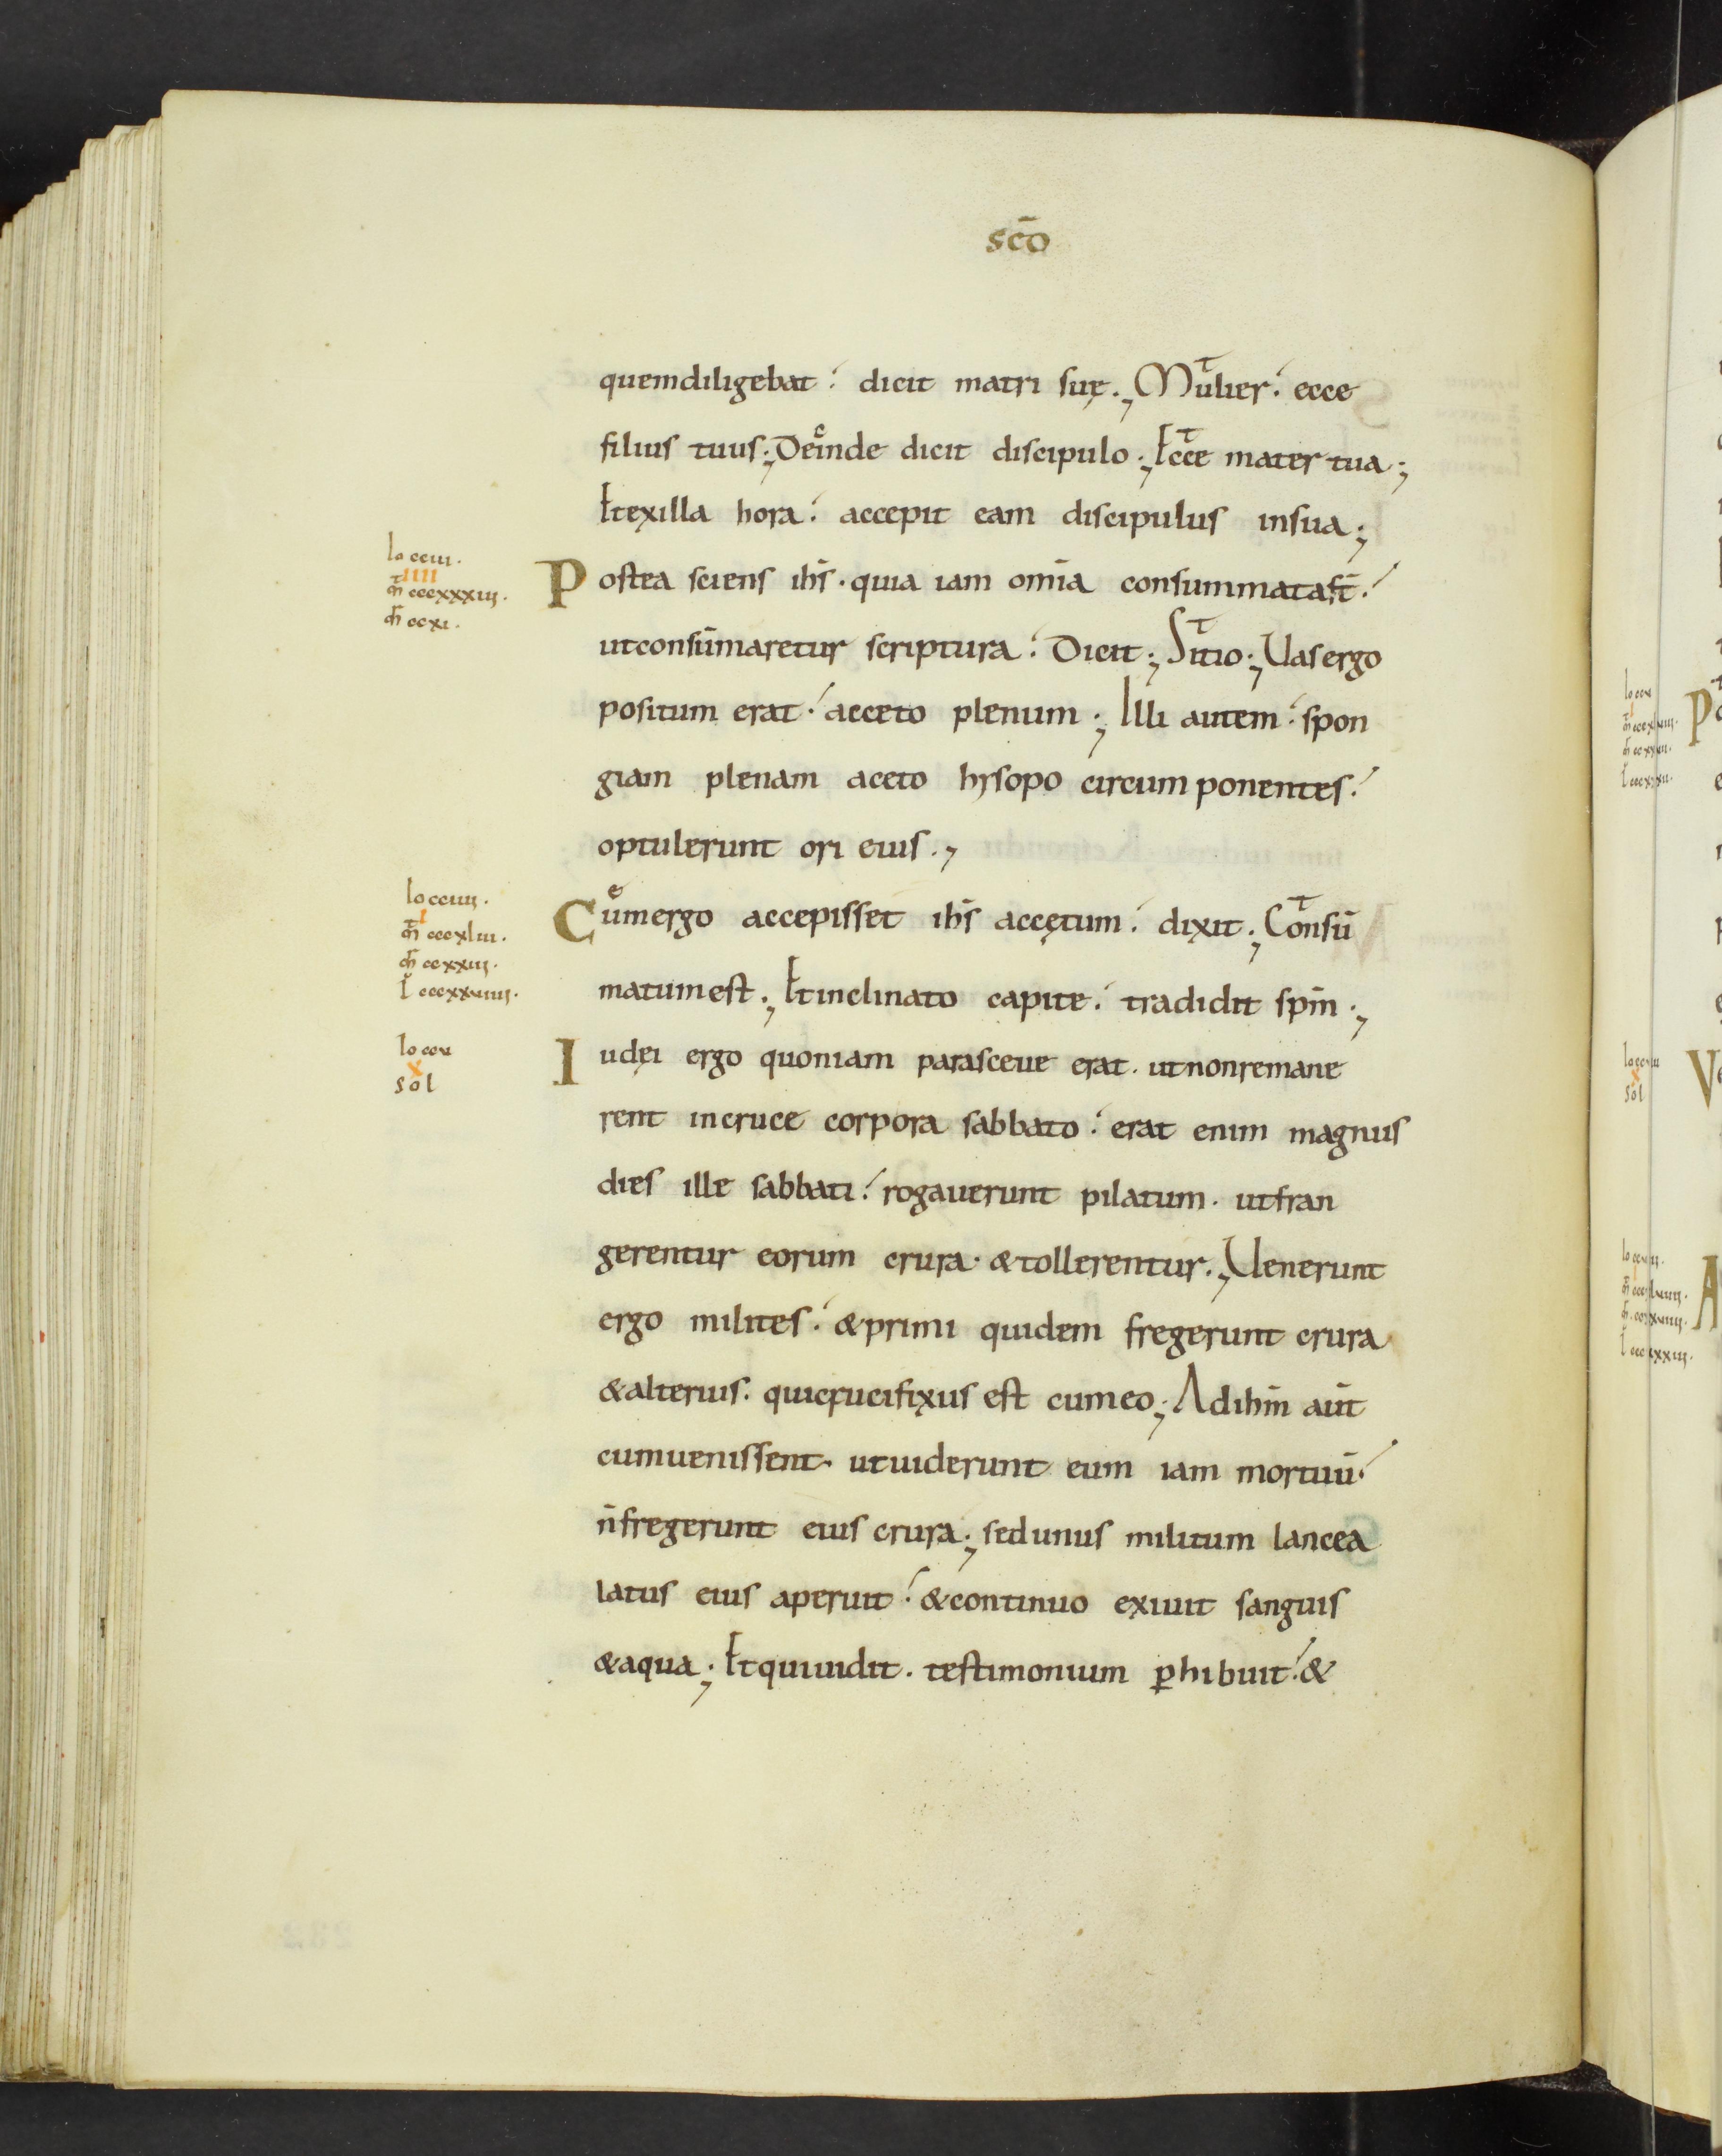 scō
quemdiligebat. dicit matri suę. Mulier. ecce
filius tuus; Deinde dicit discipulo; Ecce mater tua;
Etexilla hora. accepit eam discipulus insua;
Postea sciens ihs̄. quia iam om̄ia consummatast̄.
utconsūmaretur scriptura. Dicit; Sitio; Uasergo
positum erat. acceto plenum; Illi autem. spon
giam plenam aceto hysopo circumponentes.
optulerunt ori eius.,
Cumergo accepisset ihs̄ accętum. dixit; Consū
matumest; Etinclinato capite. tradidit spm̄;
Iudęi ergo quoniam parasceue erat. utnonremane
rent incruce corpora sabbato. erat enim magnus
dies ille sabbati. rogauerunt pilatum. utfran
gerentur eorum crura. &tollerentur; Uenerunt
ergo milites. &primi quidem fregerunt crura
&alterius. quicrucifixus est cumeo; Adihm̄ aūt
cumuenissent. utuiderunt eum iam mortuū.
n̄fregerunt eius crura; sedunus militum lancea
latus eius aperuit. &continuo exiuit sanguis
&aqua; Etquiuidit. testimonium p̱hibuit. &
Io cciii.
IIII
m̄ cccxxxiii.
m̄ ccxi.
Io cciiii.
I
m̄ cccxliii.
m̄ ccxxiii.
l cccxxuiiii.
Io ccu
X
sol